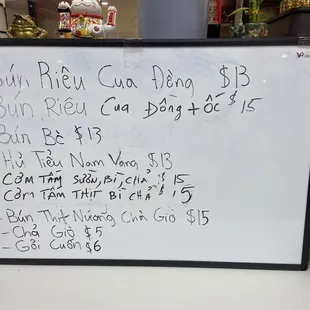 Bún Riêu Cua Đồng $13
Bún Riêu Cua Đồng + Ốc $15
Bún Bò $13
Hủ Tiếu Nam Vang $13
CƠM TẤM SƯỜN, BÌ CHẢ $15
CƠM TẤM THỊT BÌ CHẢ $15
- Bún Thịt Nướng Chả Giò $15
- Chả Giò $5
- Gỏi Cuốn $6